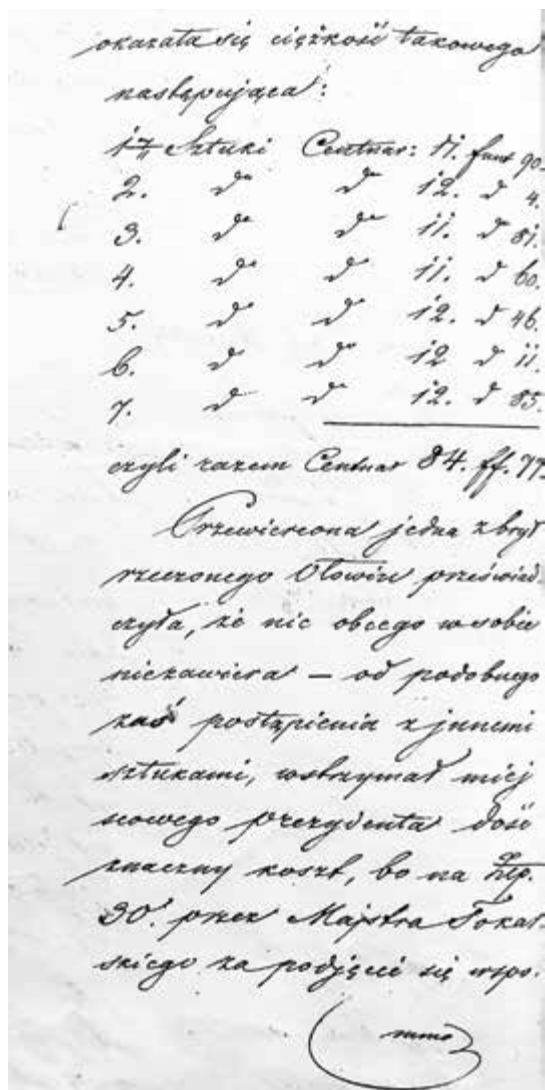 okazała się ciężkość takowego
następująca:
1ej Sztuki Centnar: 11. funt 90.
2. do do 12. d 4.
3. do do 11. d 81.
4. do do 11. d 60.
5. do do 12. d 46.
6. do do 12 d 11.
7. do do 12. d 85.
czyli razem Centnar 84. ff. 77.
Przewiercona jedna z brył
rzeczonego Ołowiu przeświad-
czyła, że nic obcego w sobie
niezawiera — od podobnego
zaś postąpienia z innemi
sztukami, wstrzymał miej
scowego prezydenta dość
znaczny koszt, bo na Złp.
30. przez Majstra Tokar-
skiego za podjęcie się wspo-
mnio